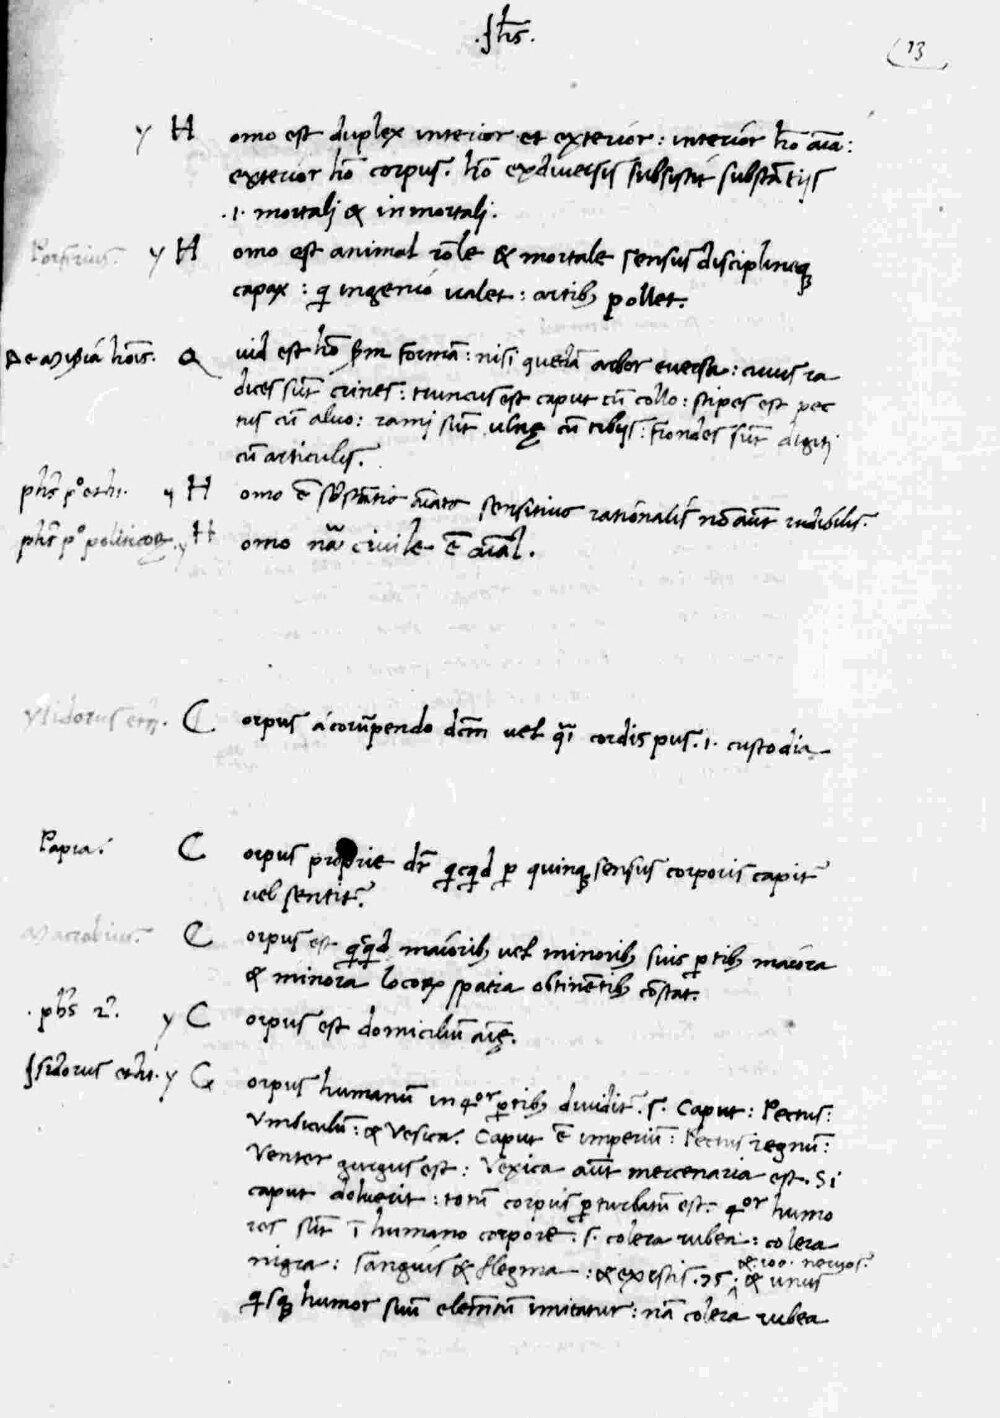 .Jhs.
13
y H omo est duplex interior et exterior : interior hō aīa :
exterior hō corpus. hō exdiversis subsistit substātijs
.i. mortali & inmortali.
Porfirius. y H omo est animal rōle & mortale sensus disciplineqȝ
capax : qi ingenio valet : artibȝ pollet.
De hōis. Q uid est hō formā : nisi quedā arbor eversa : cuius ra
dices sūt crines : truncus est caput cū collo : stipes est pec
tus cū alvo : rami sūt ulnę cū tibijs : frondes sūt digiti
cū articulis.
phs pº eth. y H omo ē aīata sensitiva rationalis nō aūt rudibilis.
phs pº politicoꝝ. y H omo nā civile ē aīal.
ysidorus eth. C orpus a corūpendo dcm vel qī cordis pus .i. custodia
Papia. C orpus proprie dr̄ qicqid ꝑ quinqȝ sensus corporis capit̄
vel sentit̄.
Macrobius. C orpus est qiqid maioribȝ vel minoribȝ suis ꝑtibȝ maiora
& minora locoꝝ spatia obtinētibȝ cōstat.
. phs 2º. y C orpus est domiciliū aīę.
Jsidorus eth. y C orpus humanū in 4or ꝑtibȝ dividit̄ .s. Caput : Pectus :
Umbiculū : & Vesica. Caput ē imperiū : Pectus regnū :
Venter gurgus est : Vexica aūt mercenaria est. Si
caput doluerit : totū corpus ꝑturbatū est. 4or humo
res sūt ī humano corpore .s. colera rubea : colera
nigra : sanguis & flegma : & 75 : & unus
& 100. nervos.
qisqȝ humor suū elemētū imitatur : nā colera rubea